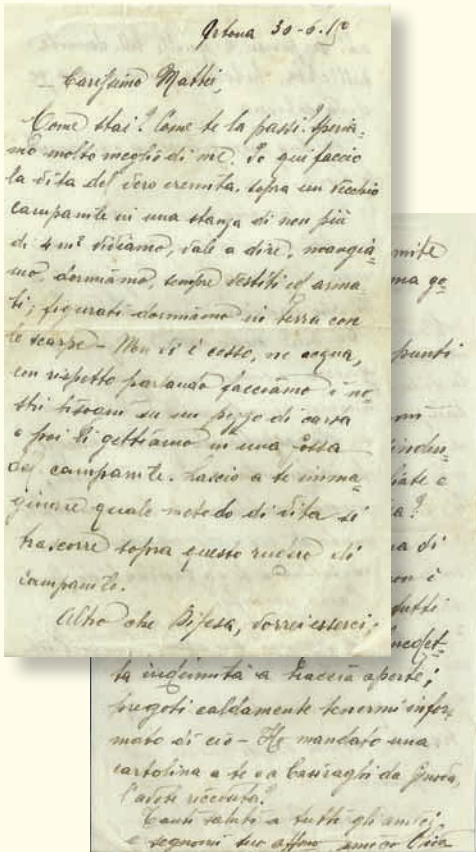 Ortona 30-6-15
Carissimo Mattei,
Come stai? Come te la passi? Speria-
mo molto meglio di me. Io qui faccio
la vita del vero eremita, sopra un vecchio
campanile in una stanza di non più
di 4 m² viviamo, vale a dire, mangia-
mo, dormiamo, sempre vestiti ed arma-
ti; figurati dormiamo in terra con
le scarpe - Non vi è cesso, ne acqua,
con rispetto parlando facciamo i no-
stri bisogni su un pezzo di carta
e poi li gettiamo in una fossa
del campanile. Lascio a te imma-
ginare quale metodo di vita si
trascorre sopra questo rudere di
campanile.
Altro che Difesa, vorrei esserci,
mite
ma go-
punti
indu-
liate a
ia?
a di
non è
tutti
ta indennità a braccia aperte;
pregoti caldamente tenermi infor-
mato di ciò - Ho mandato una
cartolina a te e a Casiraghi da
l'avete ricevuta?
Tanti saluti a tutti gli amici
e segnomi tuo affmo amico